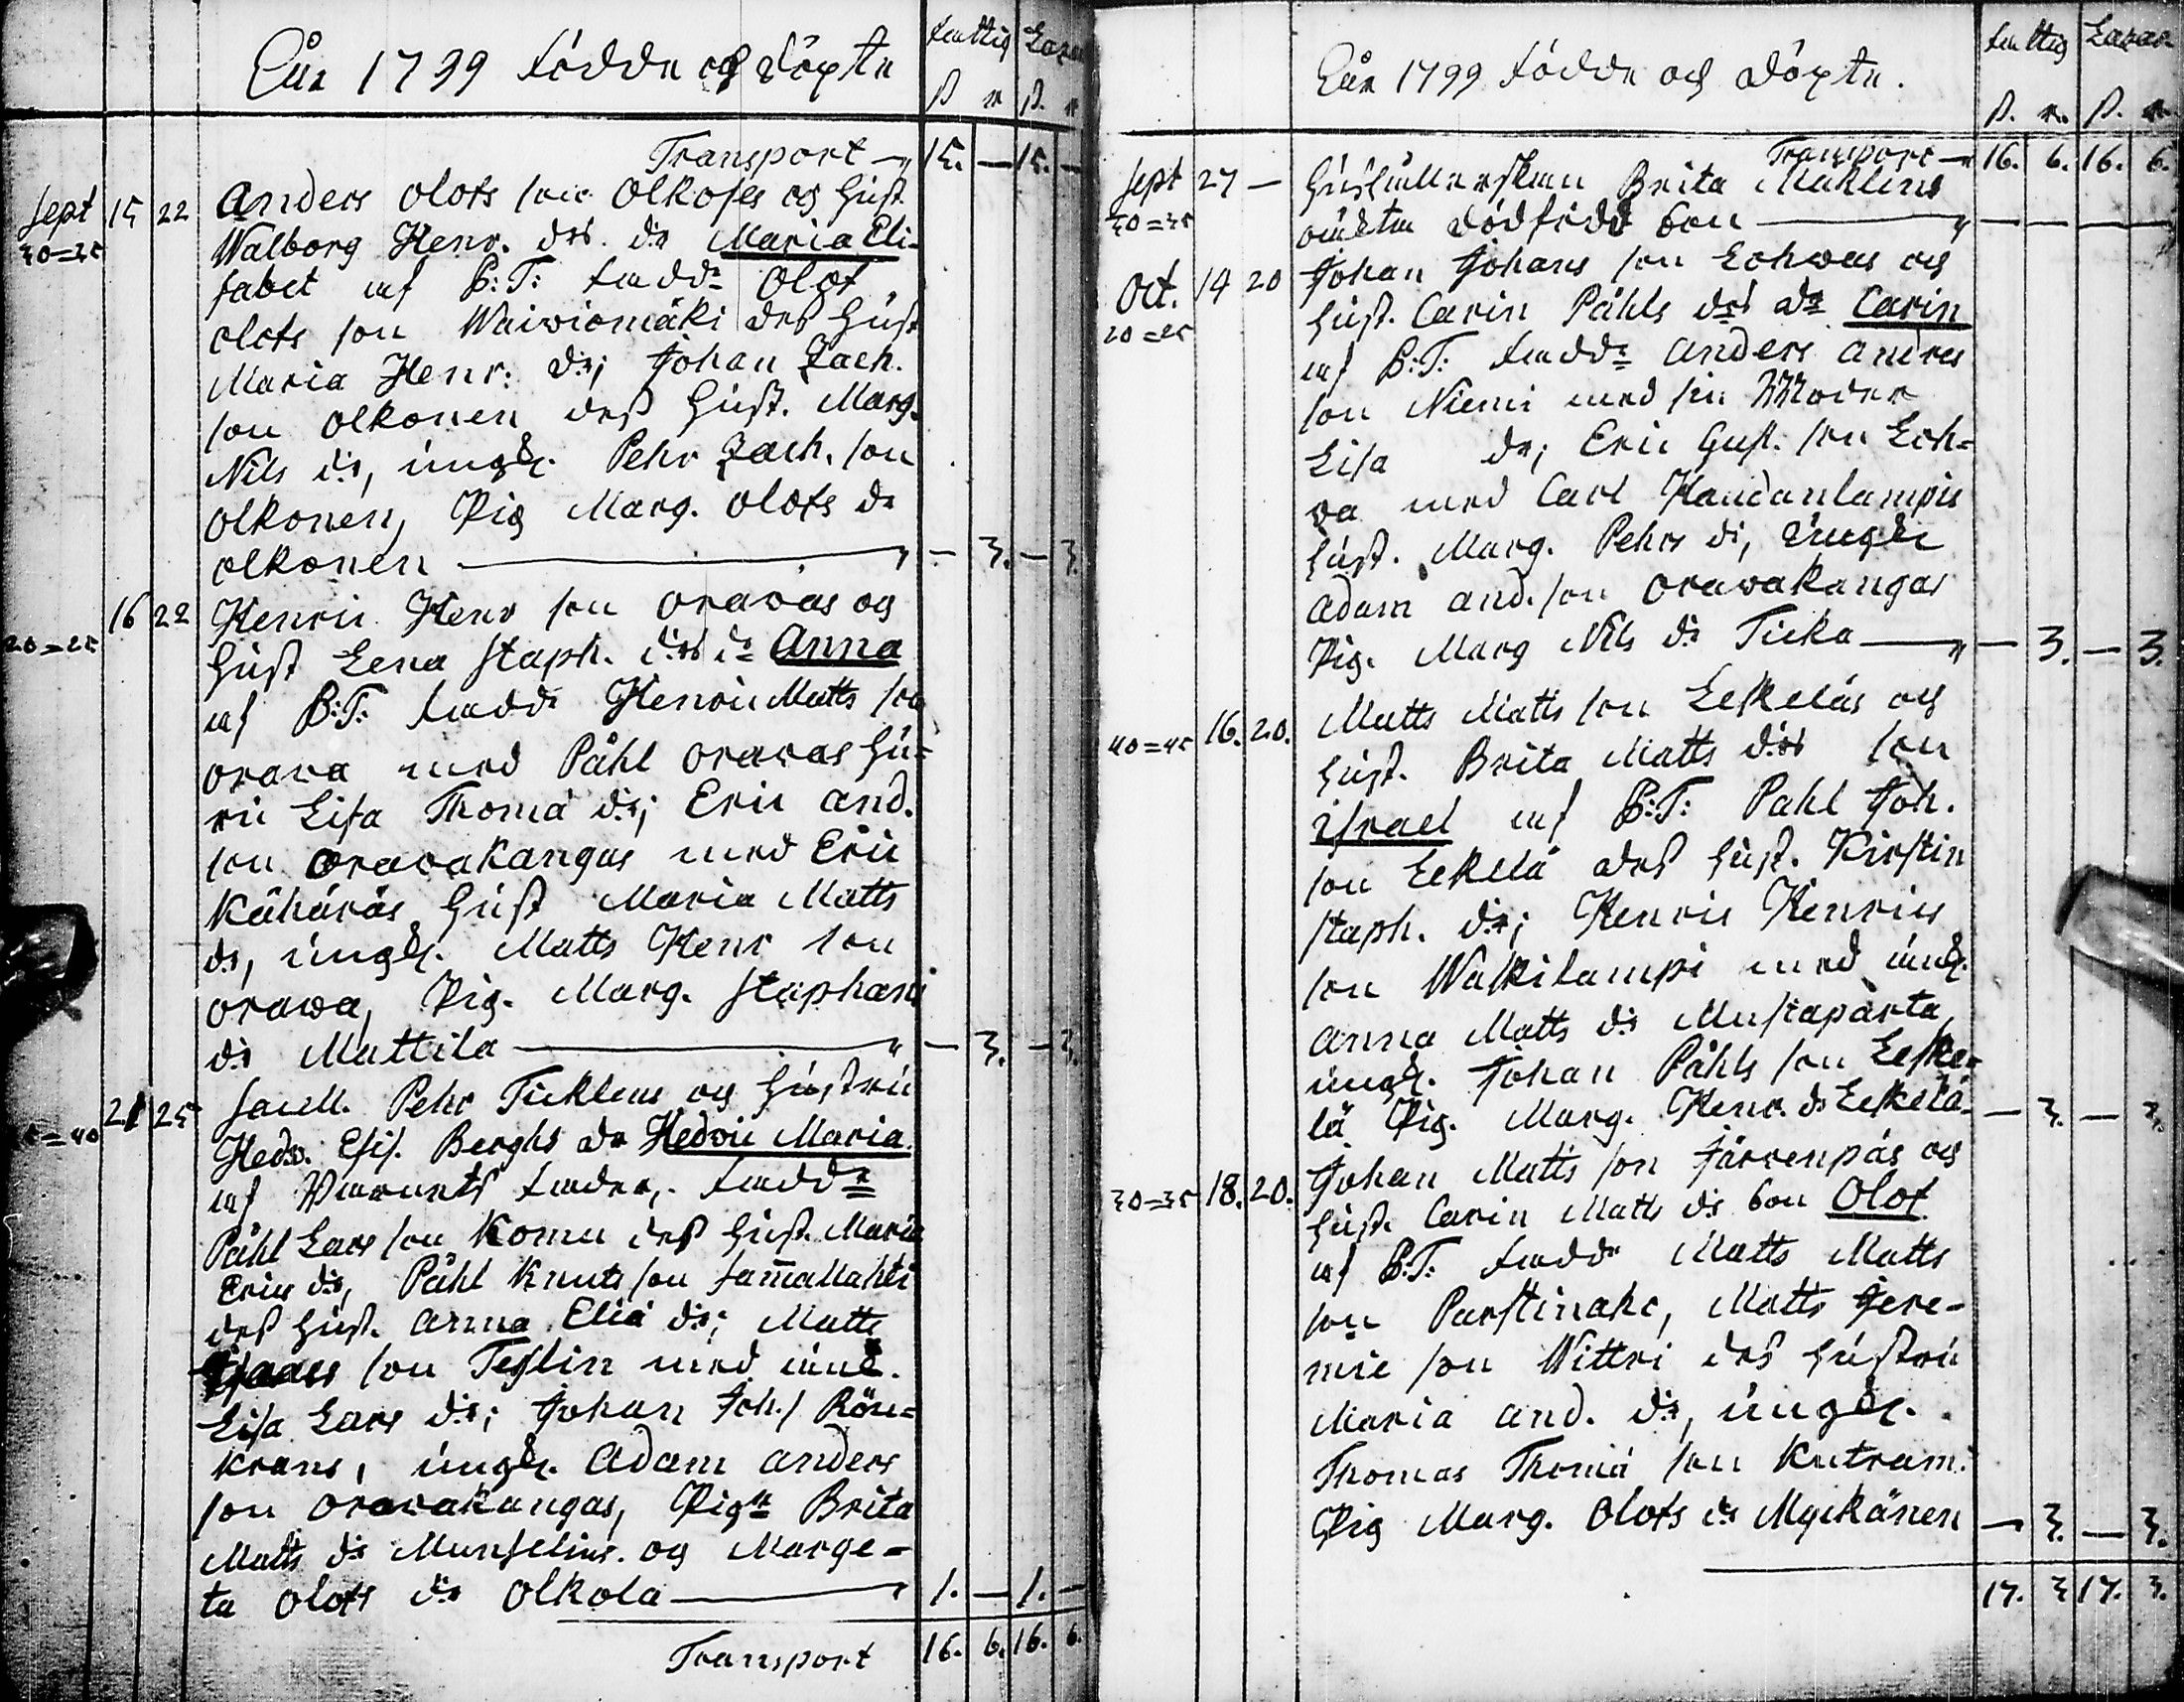 Åår 1799 födde och döpte
fattig Lazar
ß r ß. r
Transport — 15. — 15. —
Sept 15 22 Anders Olofs son Olkoses och Hust
30=35 Walborg Henr. drs dr Maria Eli-
sabet af B:T: Fadd:r Olof
Olofs son Waiwiomäki des Hust
Maria Henr: dr; Johan Zach.
son Olkonen dess Hust. Marg.
Nils dr, ungkr. Pehr Zach. son
Olkonen, Pig Marg. Olofs dr
Olkonen — 3. — 3.
16 22 Henric Henr son Orawas och
20=25 Hust Lena Staph. drs dr Anna
af B:T: Fadd:r Henric Matts son
Orawa med Påhl Orawas Hu-
ru Lisa Thomæ dr; Eric And.
son Orawakangas med Eric
Kähäräs Hust Maria Matts
dr, ungkr. Matts Henr son
Orawa, Pig. Marg. Staphans
dr Mattila — 3. — 3.
21 25 Pehr Ticklens och Hustru
=40 Hedv. Berghs dr Hedvic Maria
af Fader, Fadd:r
Påhl Lars son Komu des Hust. Maria
Erics dr, Påhl Knuts son Sam̄allahti
des Hust. Anna Eliæ dr; Matts
son Teslin med
Lisa Lars dr; Johan Joh. s Rön-
krans, ungkr. Adam Anders
son Orawakangas, Pig:r Brita
Matts dr Munselius. och Marge-
ta Olofs dr Olkola — 1. — 1. —
Transport 16. 6. 16. 6.
Åår 1799 födde och döpte.
fattig Lazar
ß. r. ß. r.
Transport — 16. 6. 16. 6.
Sept 27 — Brita Mahlins
30=35 oäckta dödfödd son — — — —
Oct. 14 20 Johan Johans son Lohwas och
20=25 Hust. Carin Påhls drs dr Carin
af B:T: Fadd:r Anders Anders
son Niemi med sin Moder
Lisa dr; Eric Gust. son Loh-
wa med Carl Haudanlampis
Hust. Marg. Pehrs dr, Ungkr
Adam And. son Orawakangas
Pig. Marg Nils dr Ticka — 3. — 3.
40=45 16. 20. Matts Matts son Leskeläs och
Hust. Brita Matts drs son
Israel af B:T: Pahl Joh.
son Leskelä des Hust. Kirstin
Staph. dr; Henric Henrics
son Walkilampi med
Anna Matts dr Mustaparta,
ungkr. Johan Påhls son Leske-
lä Pig. Marg. Henr. dr Leskelä — 3. — 3.
30=35 18. 20. Johan Matts son Järvenpäs och
Hust. Carin Matts dr Son Olof
af B:T: Fadd:r Matts Matts
son Parstinahc, Matts Jere-
mie son Wittri des Hustru
Maria And. dr, ungkr.
Thomas Thomæ son Kutram.
Pig Marg. Olofs dr Myikänen — 3. — 3.
17. 3 17. 3.